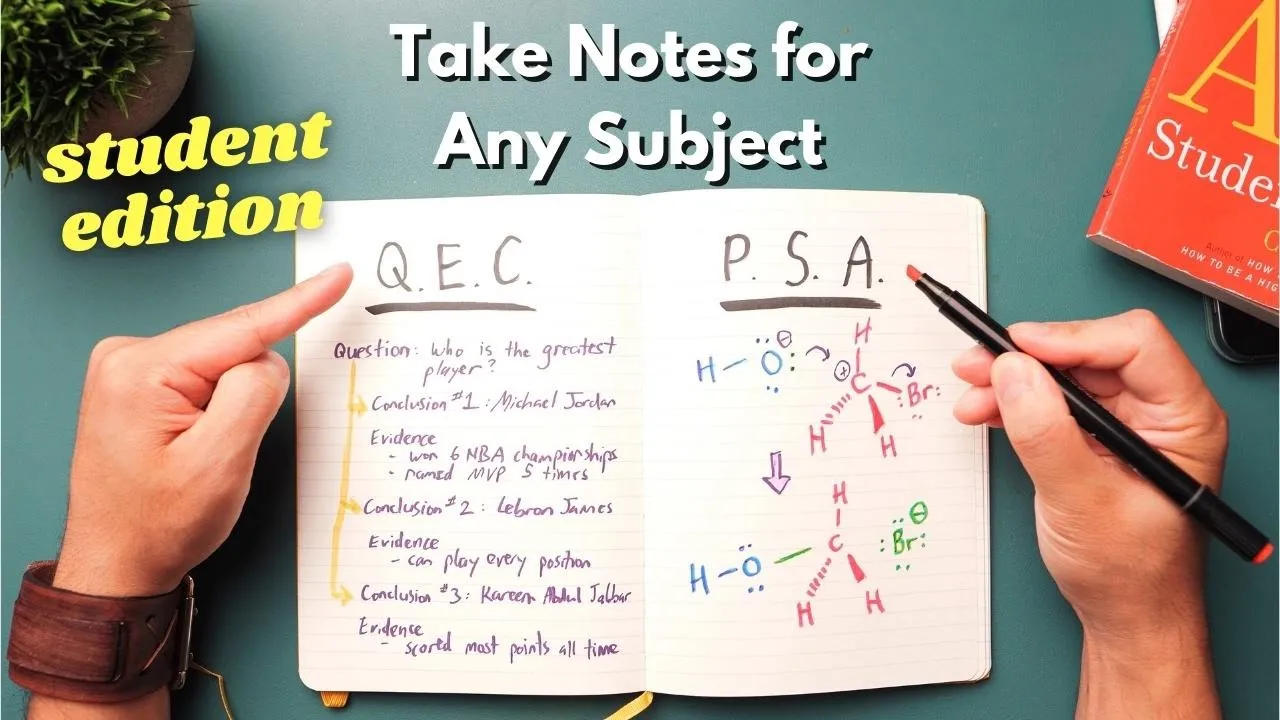 Take Notes for
Any Subject
student
edition
A
Stude
Author of HOW
HOW TO BE A HIG
Q.E.C.
Question: Who is the greatest
player?
Conclusion #1: Michael Jordan
Evidence
- won 6 NBA championships
- named MVP 5 times
Conclusion #2: Lebron James
Evidence
- can play every position
Conclusion #3: Kareem Abdul Jabbar
Evidence
- scored most points all time
P. S. A.
H
H – O ⊖ ⊕ C Br
H H
H
H – O C Br ⊖
H H